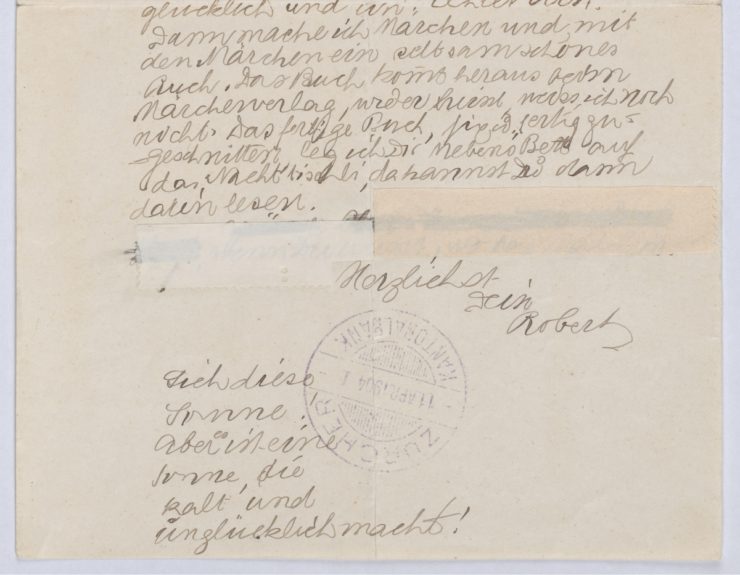 glücklich und ein. Lehrer sein.
Dann mache ich Märchen und mit
den Märchen ein seltsam schönes
Buch. Das Buch komt heraus beim
Märchenverlag, wieder heisst, weiss ich noch
nicht. Das fertige Buch, fix & fertig zu=
geschnitten leg ich Dir nebens Bett auf
das Nachttischli, da kannst Du dann
darin lesen.
Herzlichst
Dein
Robert
Sieh diese
Sonne.
Aber ist eine
Sonne, die
kalt und
unglücklich macht!
ZÜRCHER KANTONALBANK
11 APR. 1904